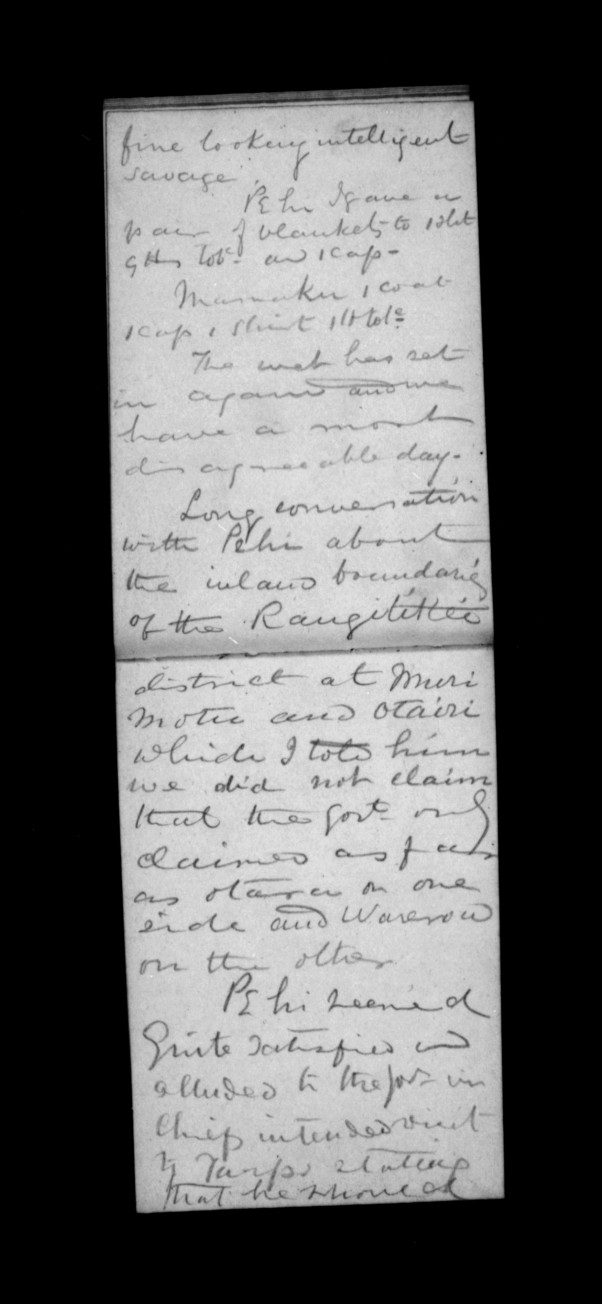 fine looking intelligent
savage.
Pehi I gave a
pair of blankets to 1 shirt
9 lbs tobc. and 1 cap -
Mamaku 1 coat
1 cap 1 shirt 1 lb tobc.
The wet has set
in again and we
have a most
disagreeable day.
Long conversation
with Pehi about
the inland boundaries
of the Rangitikei
district at Muri
Motu and Otairi
which I told him
we did not claim
that the Govt. only
claimed as far
as Otara on one
side and
on the other
Pehi seemed
Quite satisfied and
alluded to the Govr. in
Chiefs intended visit
to Taupo stating
that he should